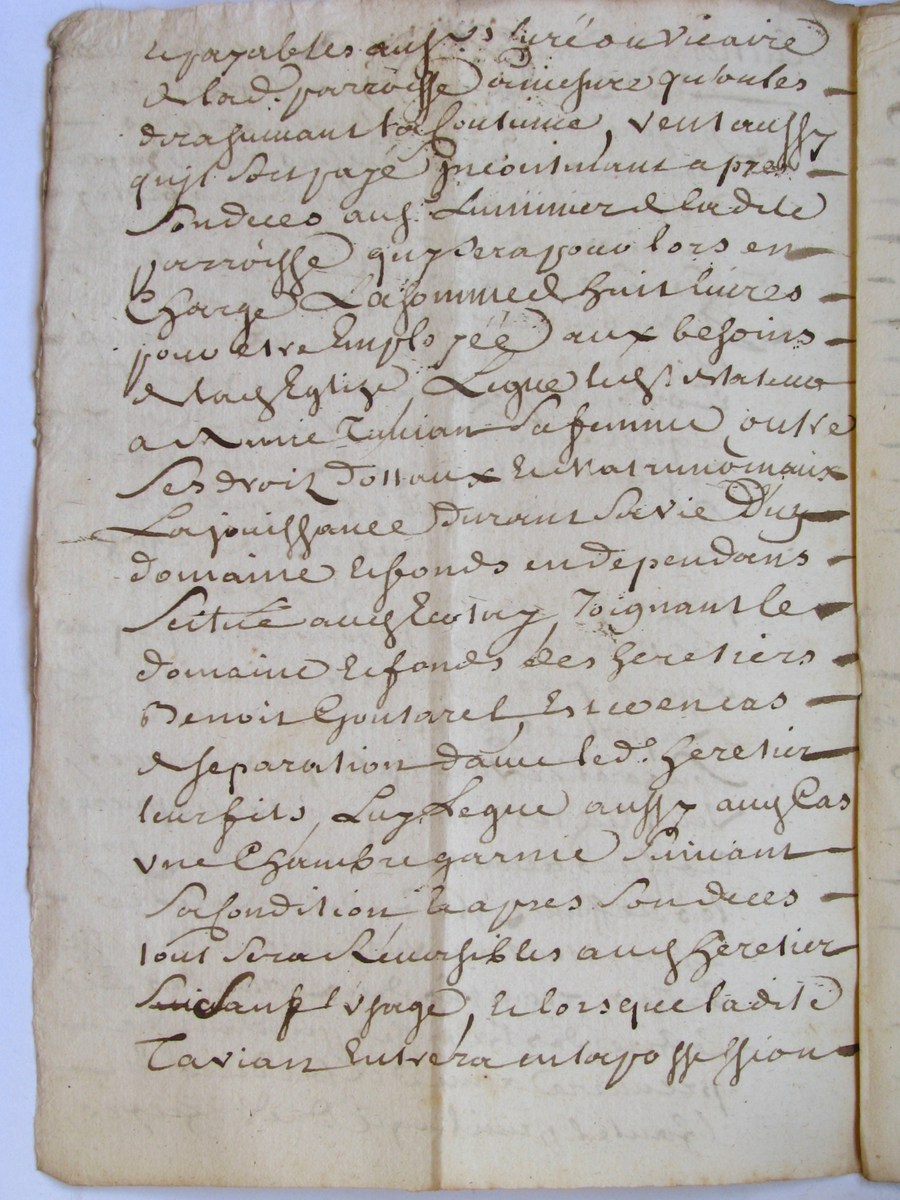 et payables aud. Srs Curé ou Vicaire
de lad. parroisse a mesure qu'on les
dira suivant la Coutume, veut aussy
qu'il soit payé Incontinant apres
Son deces aud. Luminier de ladite
parroisse quy sera pour lors en
Charge La somme de huit livres
pour etre Employéé aux besoins
de lad. Eglize, Legue led. Sr. testateur
a Tavian Sa femme outre
Ses droit dottaux et Matrimoniaux
La jouissance Durant Sa vie D'un
domaine et fonds en dependans
Scitué aud. Joignant le
domaine et fonds des heretiers
Benoit Goutarel, Est ce en cas
de separation d'avec led. heretier
leur fils, Luy Legue aussy aud. Cas
vne Chambre garnie Suivant
Sa Condition, et apres Son deces
tout sera Reversibles aud. heretier
Sauf l'vsage, et lorsque ladite
Tavian Entrera en la possession